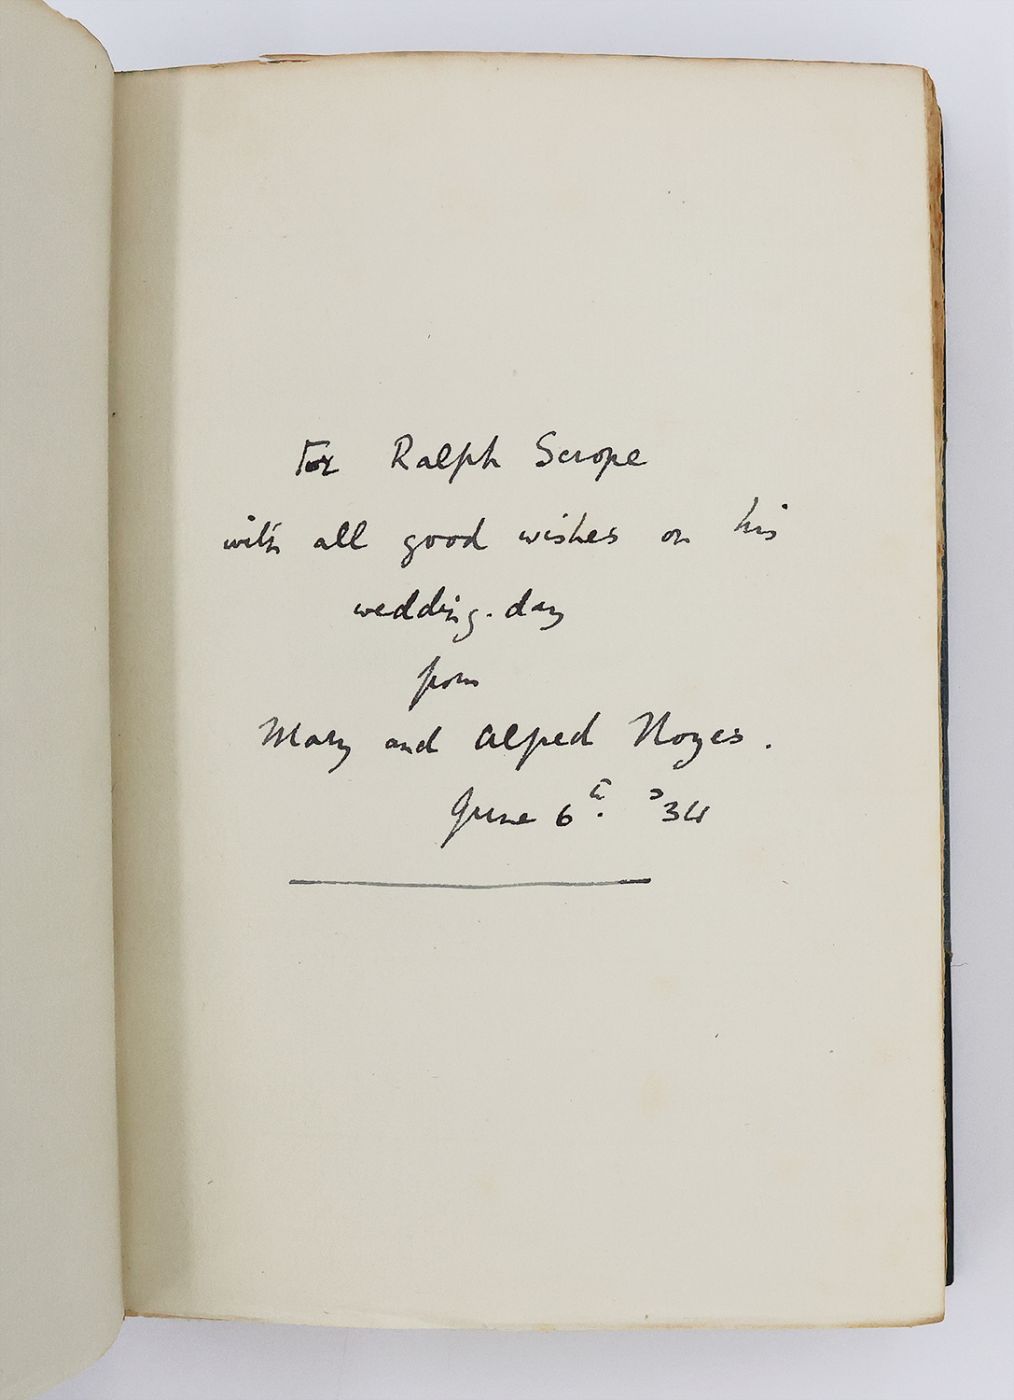 For Ralph Scrope
with all good wishes on his
wedding-day
from
Mary and Alfred Noyes.
June 6th. '34